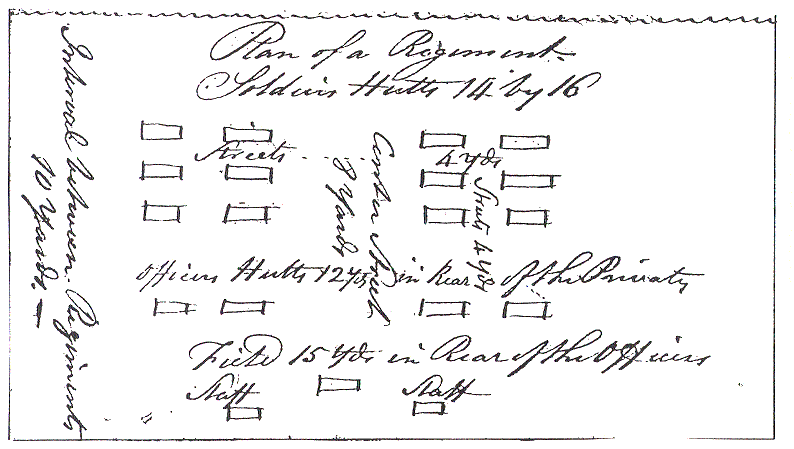 Plan of a Regiment.
Soldiers Hutts 14 by 16
Interval between Regiments
10 Yards. —
Streets ---- 4 yds
Center Street
8 Yards
Streets 4 Yds
Officers Hutts 12 yds in Rear of the Privates
Field 15 Yds in Rear of the Officers
Staff Staff